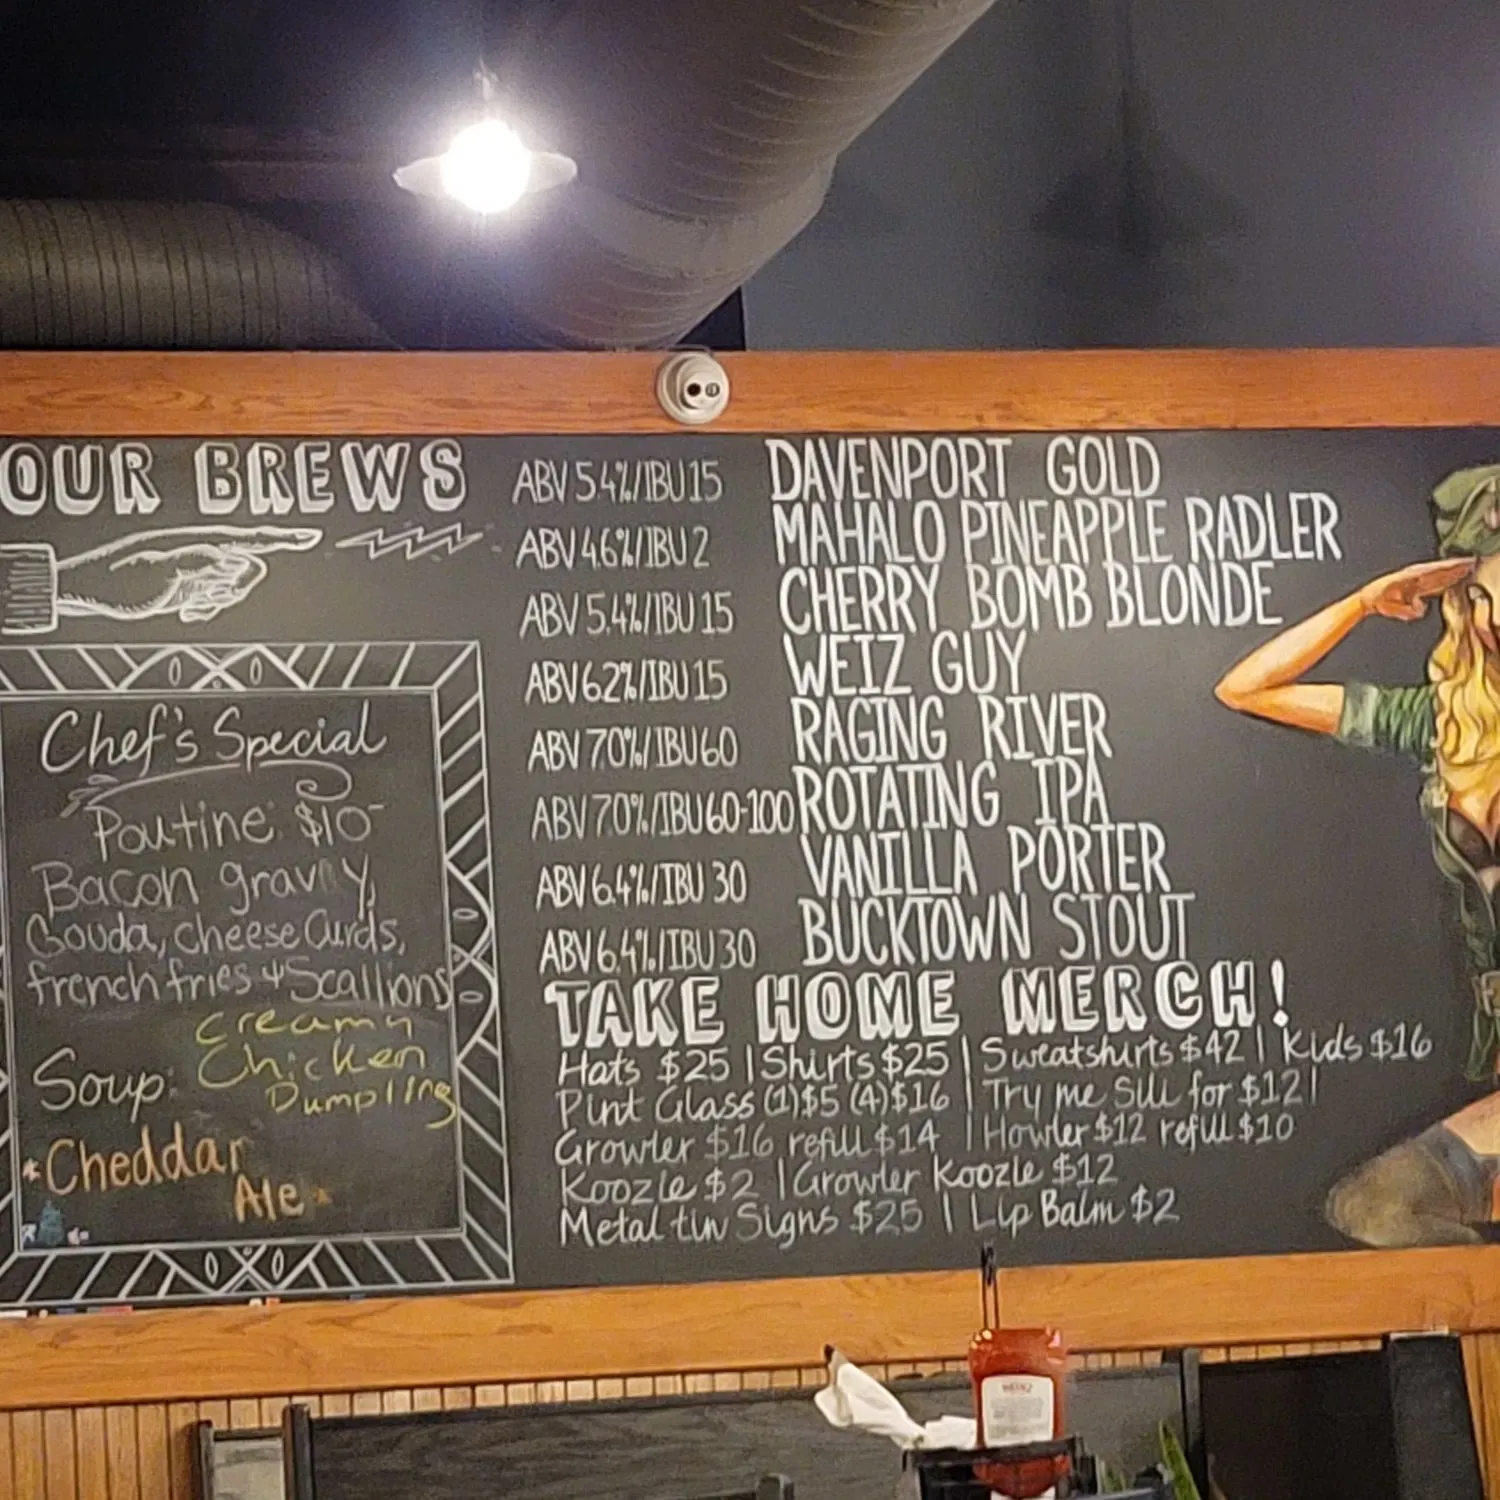 OUR BREWS
ABV 5.4%/IBU 15 DAVENPORT GOLD
ABV 4.6%/IBU 2 MAHALO PINEAPPLE RADLER
ABV 5.4%/IBU 15 CHERRY BOMB BLONDE
ABV 6.2%/IBU 15 WEIZ GUY
ABV 7.0%/IBU 60 RAGING RIVER
ABV 7.0%/IBU 60-100 ROTATING IPA
ABV 6.4%/IBU 30 VANILLA PORTER
ABV 6.4%/IBU 30 BUCKTOWN STOUT
Chef's Special
Poutine: $10-
Bacon gravy,
Gouda, cheese Curds,
french fries & Scallions
Creamy
Soup: Chicken
Dumpling
*Cheddar
Ale*
TAKE HOME MERCH!
Hats $25 | Shirts $25 | Sweatshirts $42 | Kids $16
Pint Glass (1)$5 (4)$16 | Try me Sili for $12 |
Growler $16 refill $14 | Howler $12 refill $10
Koozie $2 | Growler Koozie $12
Metal tin Signs $25 | Lip Balm $2
HEINZ